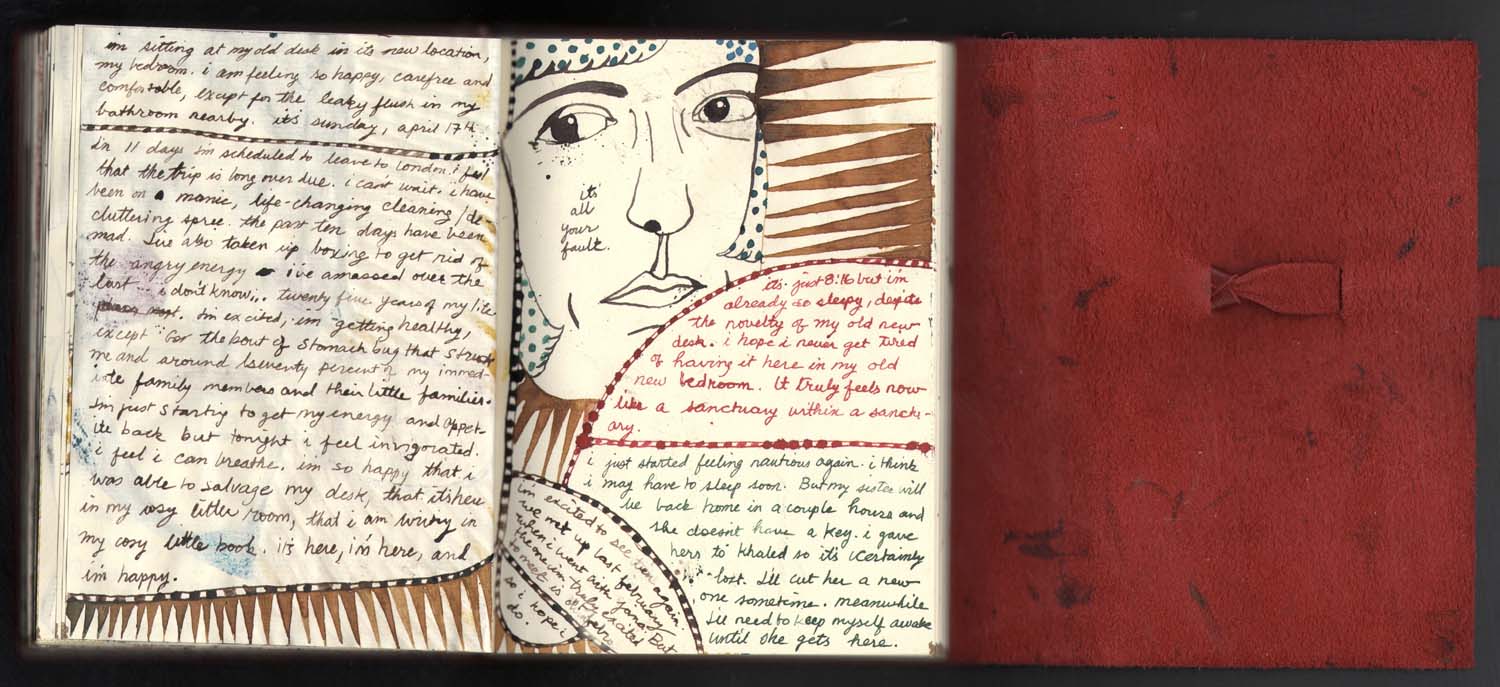 im sitting at my old desk in its new location,
my bedroom. i am feeling so happy, carefree and
comfortable, except for the leaky flush in my
bathroom nearby. it's sunday, april 17th.
in 11 days i'm scheduled to leave to london. i feel
that the trip is long over due. i can't wait. i have
been on a manic, life-changing cleaning/de-
cluttering spree. the past ten days have been
mad. I've also taken up boxing to get rid of
the angry energy i've amassed over the
last... i don't know... twenty five years of my life
. i'm excited, i'm getting healthy,
except for the bout of stomach bug that struck
me and around seventy percent of my immed-
iate family members and their little families.
i'm just starting to get my energy and appet-
ite back but tonight i feel invigorated.
i feel i can breathe. im so happy that i
was able to salvage my desk, that it's here
in my cosy little room, that i am writing in
my cosy little book. it's here, i'm here, and
i'm happy.
its
all
your
fault.
it's just 8:16 but i'm
already so sleepy, despite
the novelty of my old new
desk. i hope i never get tired
of having it here in my old
new bedroom. It truly feels now
like a sanctuary within a sanctu-
ary.
i just started feeling nautious again. i think
i may have to sleep soon. But my sister will
be back home in a couple hours and
she doesn't have a key. i gave
hers to Khaled so it's certainly
lost. I'll cut her a new
one sometime. meanwhile
I'll need to keep myself awake
until she gets here.
im excited to see again.
we met up last february
when i went with yana. But
the one im truly excited
to meet is
so i hope i
do.